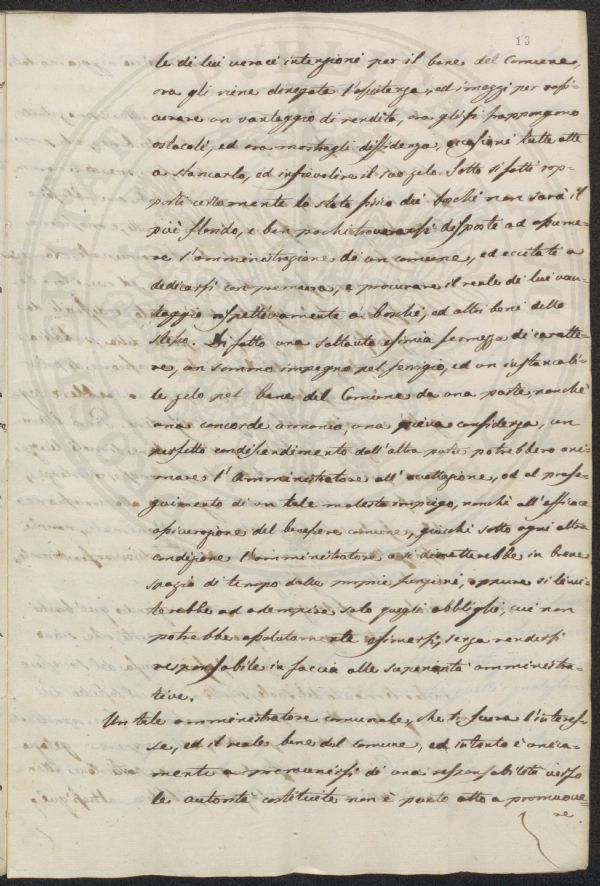 13
le di lui veraci intenzioni per il bene del Comune,
ora gli viene denegata l'assistenza, ed i mezzi per assi=
curare un vantaggio di rendita, ora gli si frappongono
ostacoli, ed ora mostragli diffidenza, occasioni tutte atte
a stancarlo, ed infievolire il suo zelo. Sotto sifatti rap=
porti certamente lo stato fisico dei boschi non sarà il
più florido, e ben pochi troveransi disposti ad assume=
re l'amministrazione di un comune, ed eccitati a
dedicarsi con premura, e procurare il reale di lui van=
taggio rispettivamente a boschi, ed altri beni dello
stesso. Di fatto una soltanto esimia fermezza di caratte=
re, un sommo impegno pel servigio, ed un instancabi=
le zelo pel bene del Comune da una parte, nonchè
una concorde armonia, una piena confidenza, un
perfetto condiscendimento dall'altra parte potrebbero ani=
mare l'Amministratore all'accettazione, ed al prose=
guimento di un tale molesto impiego, nonchè all'efficace
del benessere comune, giacchè sotto ogni altra
condizione l'amministratore o si dimetterebbe in breve
spazio di tempo dalle proprie funzioni, oppure si limi=
terebbe ad adempire solo quegli obblighi, cui non
potrebbe assolutamente esimersi, senza rendersi
responsabile in faccia alle superiorità amministra=
tive.
Un tale amministratore comunale, che trascura l'interes=
se, ed il reale bene del comune, ed intento è unica=
mente a premunirsi di una responsabilità verso
le autorità costituite non è punto atto a promuove=
re